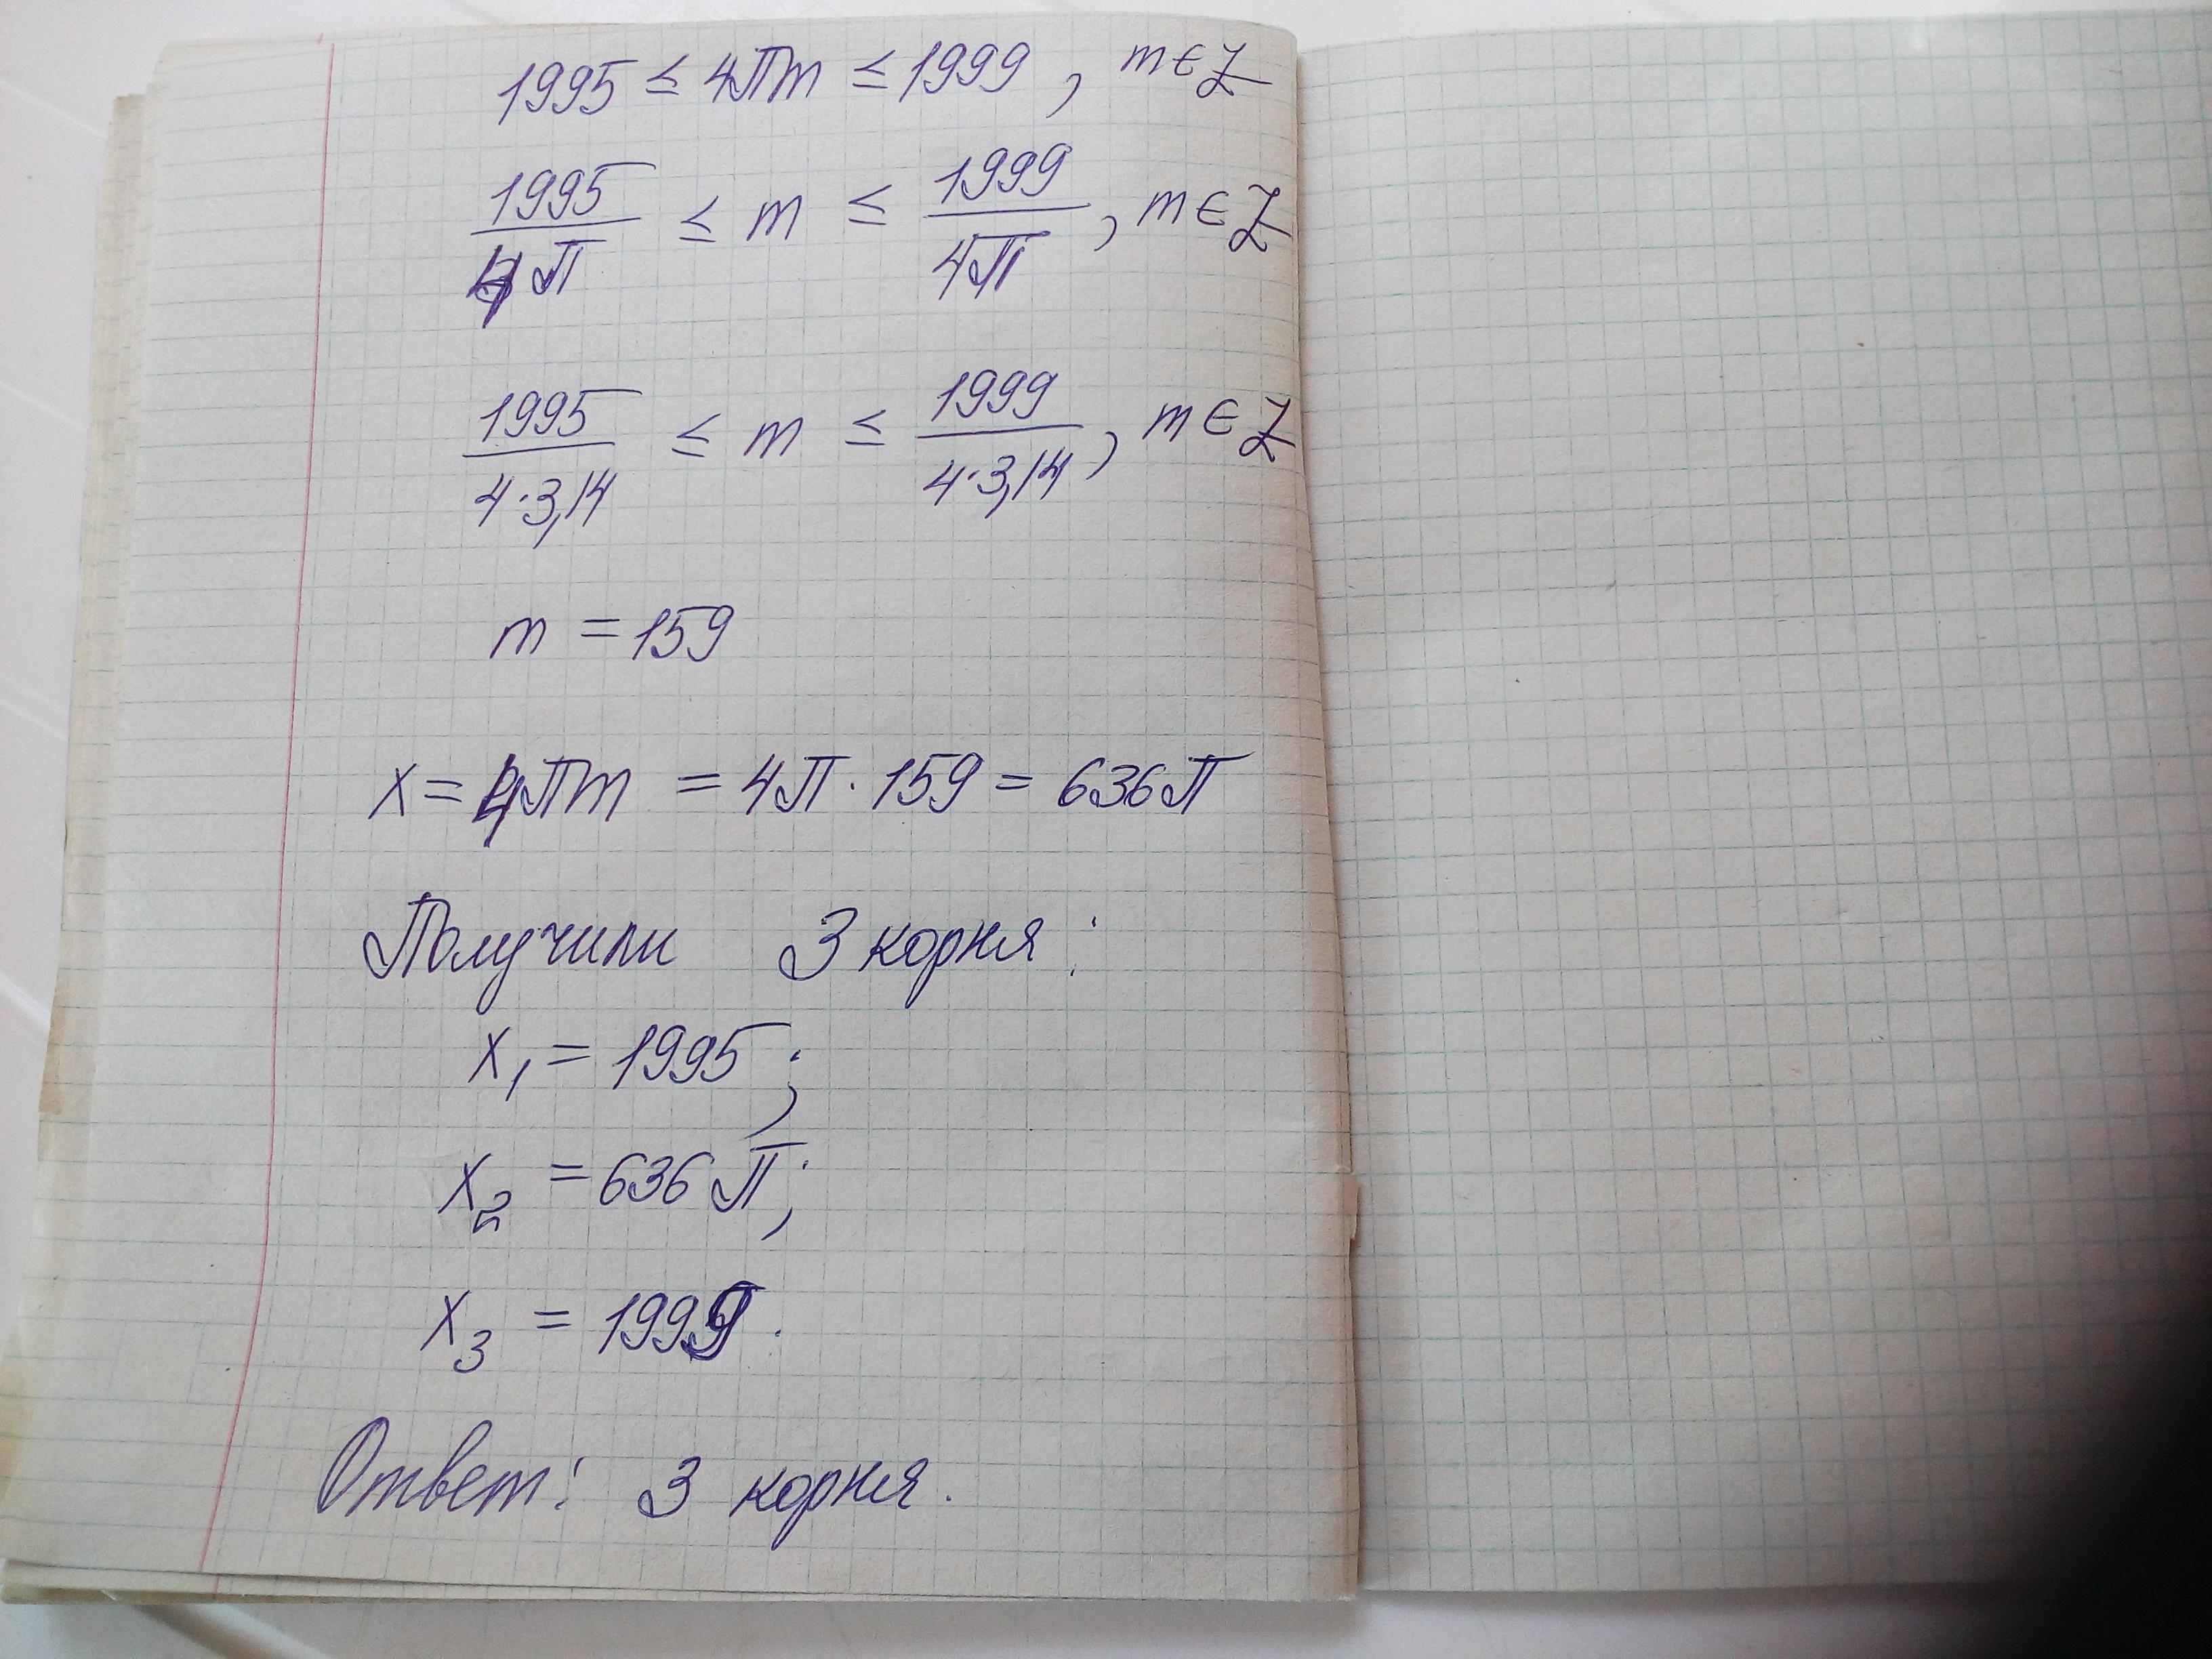 1995 ≤ 4πm ≤ 1999, m ∈ Z
1995/4π ≤ m ≤ 1999/4π, m ∈ Z
1995/4·3,14 ≤ m ≤ 1999/4·3,14, m ∈ Z
m = 159
x = 4πm = 4π · 159 = 636π
Получили 3 корня:
x₁ = 1995;
x₂ = 636π;
x₃ = 1999.
Ответ: 3 корня.